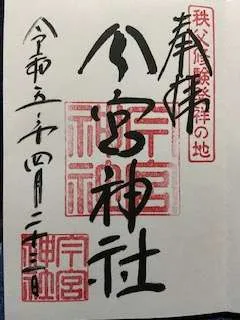 秩父修験発祥の地
奉拝
今宮神社
令和五年四月二十三日
今宮
神社
今宮
神社